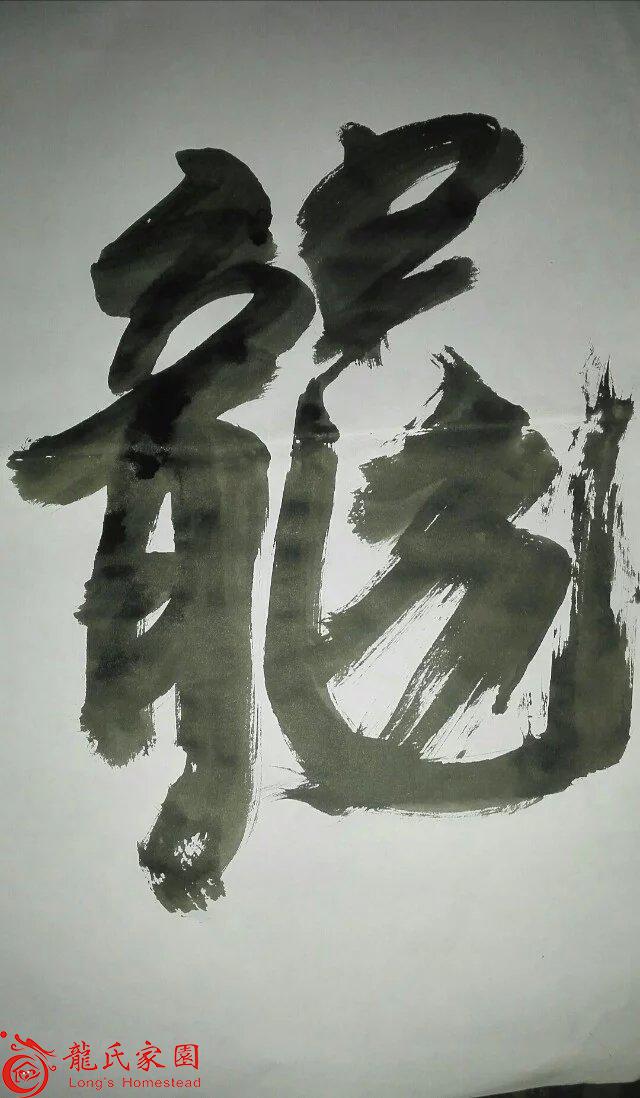 龍
龍氏家園
Long's Homestead